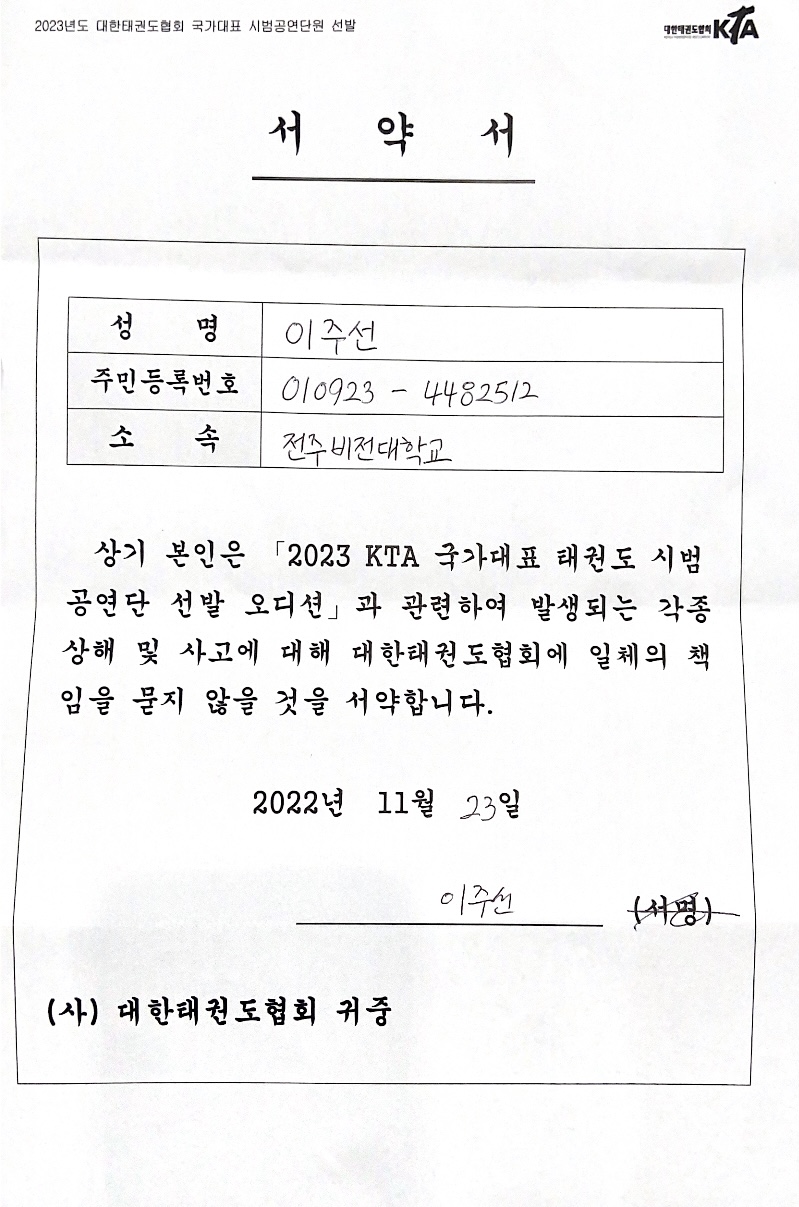 2023년도 대한태권도협회 국가대표 시범공연단원 선발
대한태권도협회 KTA
서 약 서
성 명 이주선
주민등록번호 010923 - 4482512
소 속 전주비전대학교
상기 본인은 「2023 KTA 국가대표 태권도 시범
공연단 선발 오디션」과 관련하여 발생되는 각종
상해 및 사고에 대해 대한태권도협회에 일체의 책
임을 묻지 않을 것을 서약합니다.
2022년 11월 23일
이주선 (서명)
(사) 대한태권도협회 귀중